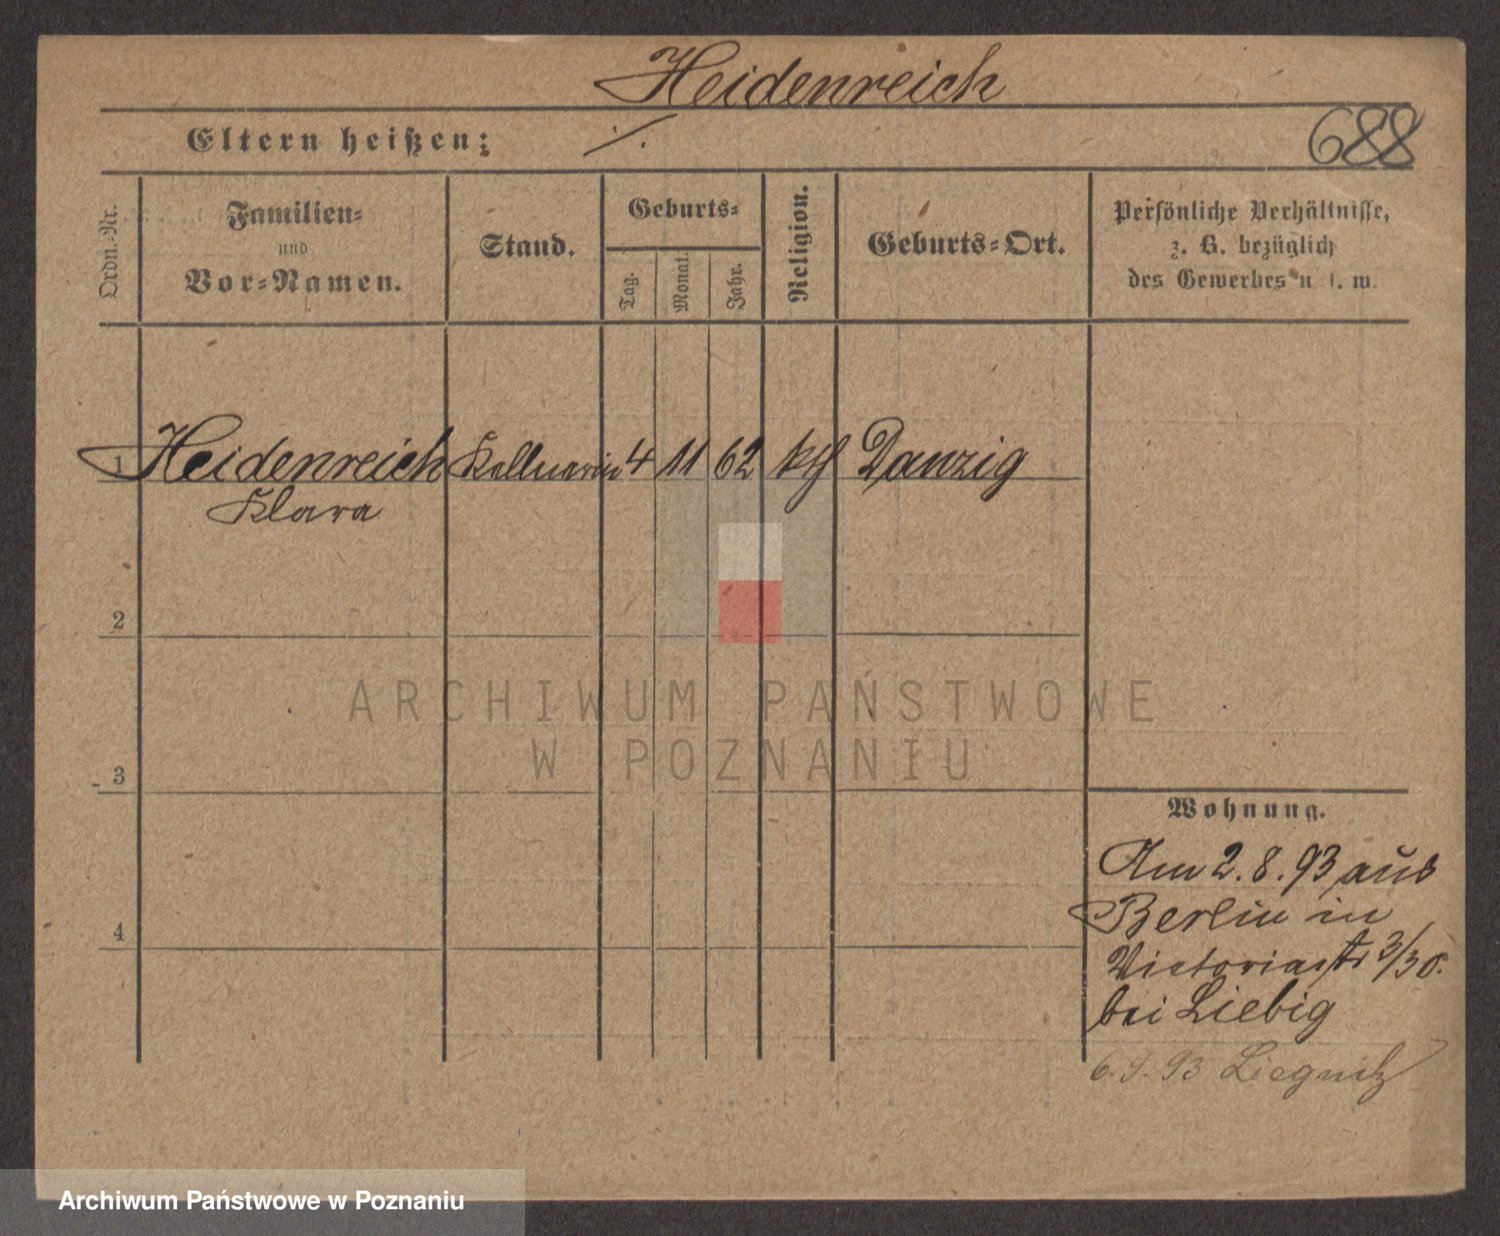 Heidenreich
Eltern heißen: ./.
688
Ordn.-Nr.
Familien-
und
Vor-Namen.
Stand.
Geburts-
Tag.
Monat.
Jahr.
Religion.
Geburts-Ort.
Persönliche Verhältnisse,
z. B. bezüglich
des Gewerbes u. s. w.
1 Heidenreich Kellnerin 4 11 62 kth Danzig
Klara
2
3
4
ARCHIWUM PAŃSTWOWE
W POZNANIU
Wohnung.
Am 2.8.93 aus
Berlin in
Victoriastr 3/30.
bei Liebig
6.9.93 Liegnitz
Archiwum Państwowe w Poznaniu